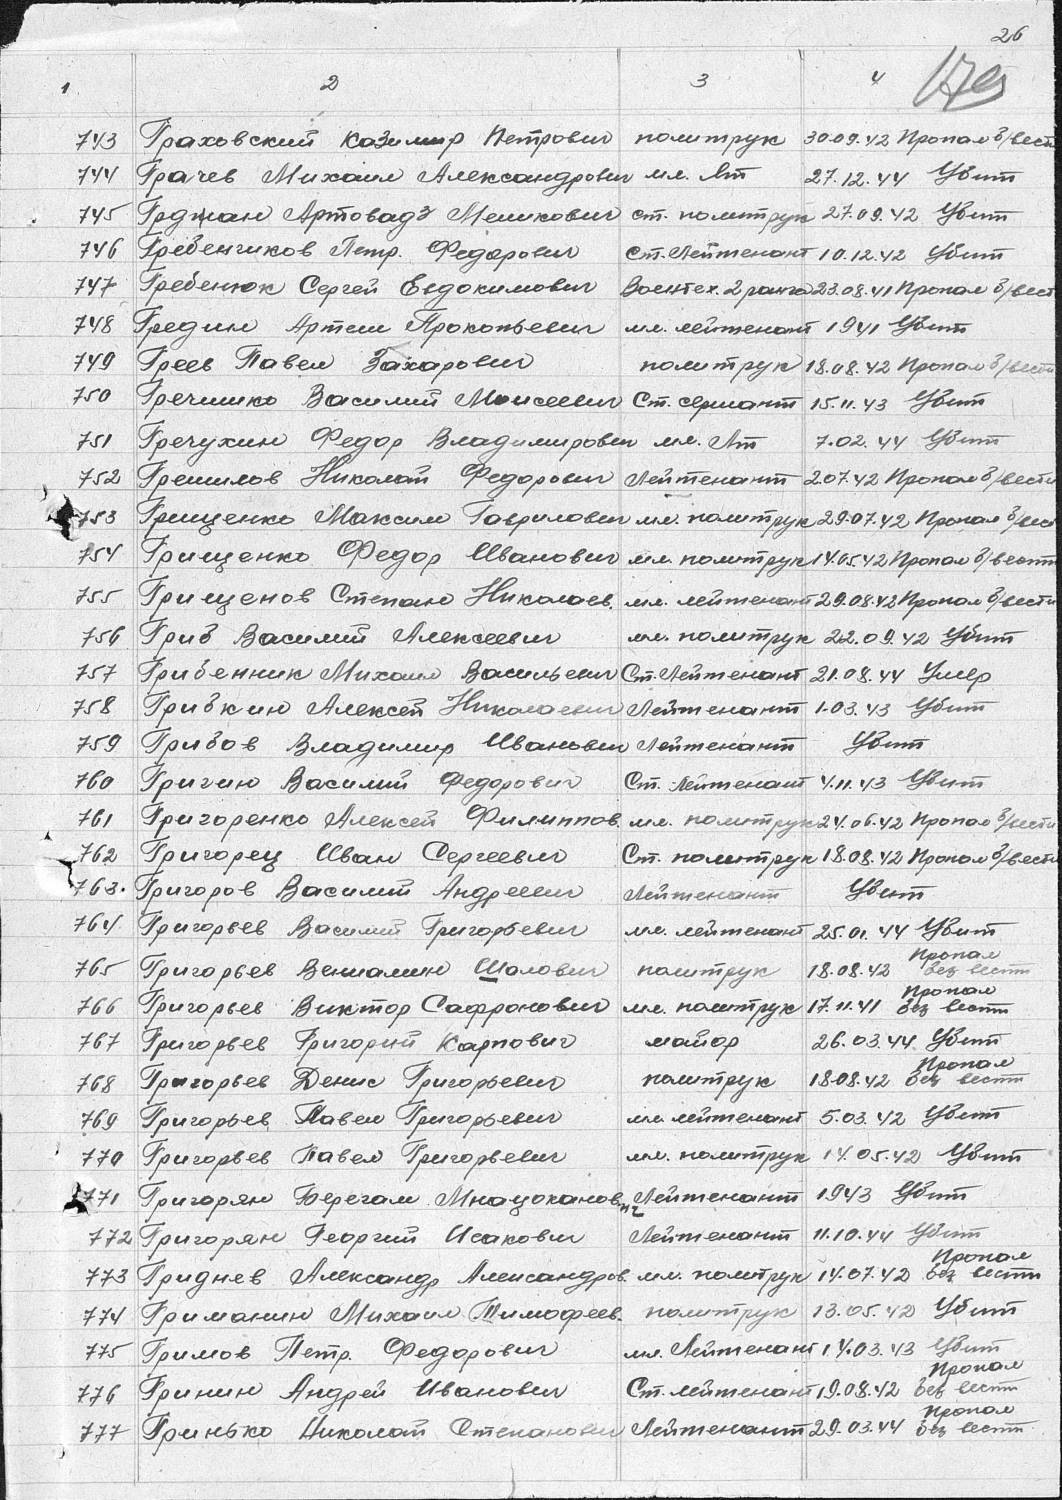 26
1 2 3 4 179
743 Граховский Казимир Петрович политрук 30.09.42 Пропал б/вест
744 Грачев Михаил Александрович мл. Лт 27.12.44 Убит
745 Грджан Артовадз Меликович ст. политрук 27.09.42 Убит
746 Гребенчиков Петр. Федорович Ст. Лейтенант 10.12.42 Убит
747 Гребенюк Сергей Евдокимович Воентех. 2 ранга 23.08.41 Пропал б/вест
748 Гредин Артем Прокопьевич мл. лейтенант 1941 Убит
749 Греев Павел Захарович политрук 18.08.42 Пропал б/вести
750 Гречишко Василий Моисеевич Ст. сержант 15.11.43 Убит
751 Гречухин Федор Владимирович мл. Лт 7.02.44 Убит
752 Грешилов Николай Федорович Лейтенант 2.07.42 Пропал б/вести
753 Грищенко Максим Гаврилович мл. политрук 29.07.42 Пропал б/вес
754 Грищенко Федор Иванович мл. политрук 14.05.42 Пропал б/вести
755 Грищенов Степан Николаев. мл. лейтенант 29.08.42 Пропал б/вести
756 Гриб Василий Алексеевич мл. политрук 22.09.42 Убит
757 Грибенник Михаил Васильевич Ст. Лейтенант 21.08.44 Умер
758 Грибкин Алексей Николаевич Лейтенант 1.03.43 Убит
759 Грибов Владимир Иванович Лейтенант Убит
760 Григин Василий Федорович Ст. Лейтенант 4.11.43 Убит
761 Григоренко Алексей Филиппов. мл. политрук 24.06.42 Пропал б/вести
762 Григорец Иван Сергеевич Ст. политрук 18.08.42 Пропал б/вести
763. Григоров Василий Андреевич Лейтенант Убит
764 Григорьев Василий Григорьевич мл. лейтенант 25.01.44 Убит
765 Григорьев Вениамин Шолович политрук 18.08.42 Пропал без вести
766 Григорьев Виктор Сафронович мл. политрук 17.11.41 Пропал без вести
767 Григорьев Григорий Карпович майор 26.03.44 Убит
768 Григорьев Денис Григорьевич политрук 18.08.42 Пропал без вести
769 Григорьев Павел Григорьевич мл. лейтенант 5.03.42 Убит
770 Григорьев Павел Григорьевич мл. политрук 14.05.42 Убит
771 Григорян Берегам Мнацоканович Лейтенант 1943 Убит
772 Григорян Георгий Исакович Лейтенант 11.10.44 Убит
773 Григнев Александр Александров. мл. политрук 14.07.42 Пропал без вести
774 Гриманин Михаил Тимофеев. политрук 13.05.42 Убит
775 Гримов Петр. Федорович мл. Лейтенант 14.03.43 Убит
776 Гринин Андрей Иванович Ст. лейтенант 19.08.42 Пропал без вести
777 Гринько Николай Степанович Лейтенант 29.03.44 Пропал без вести